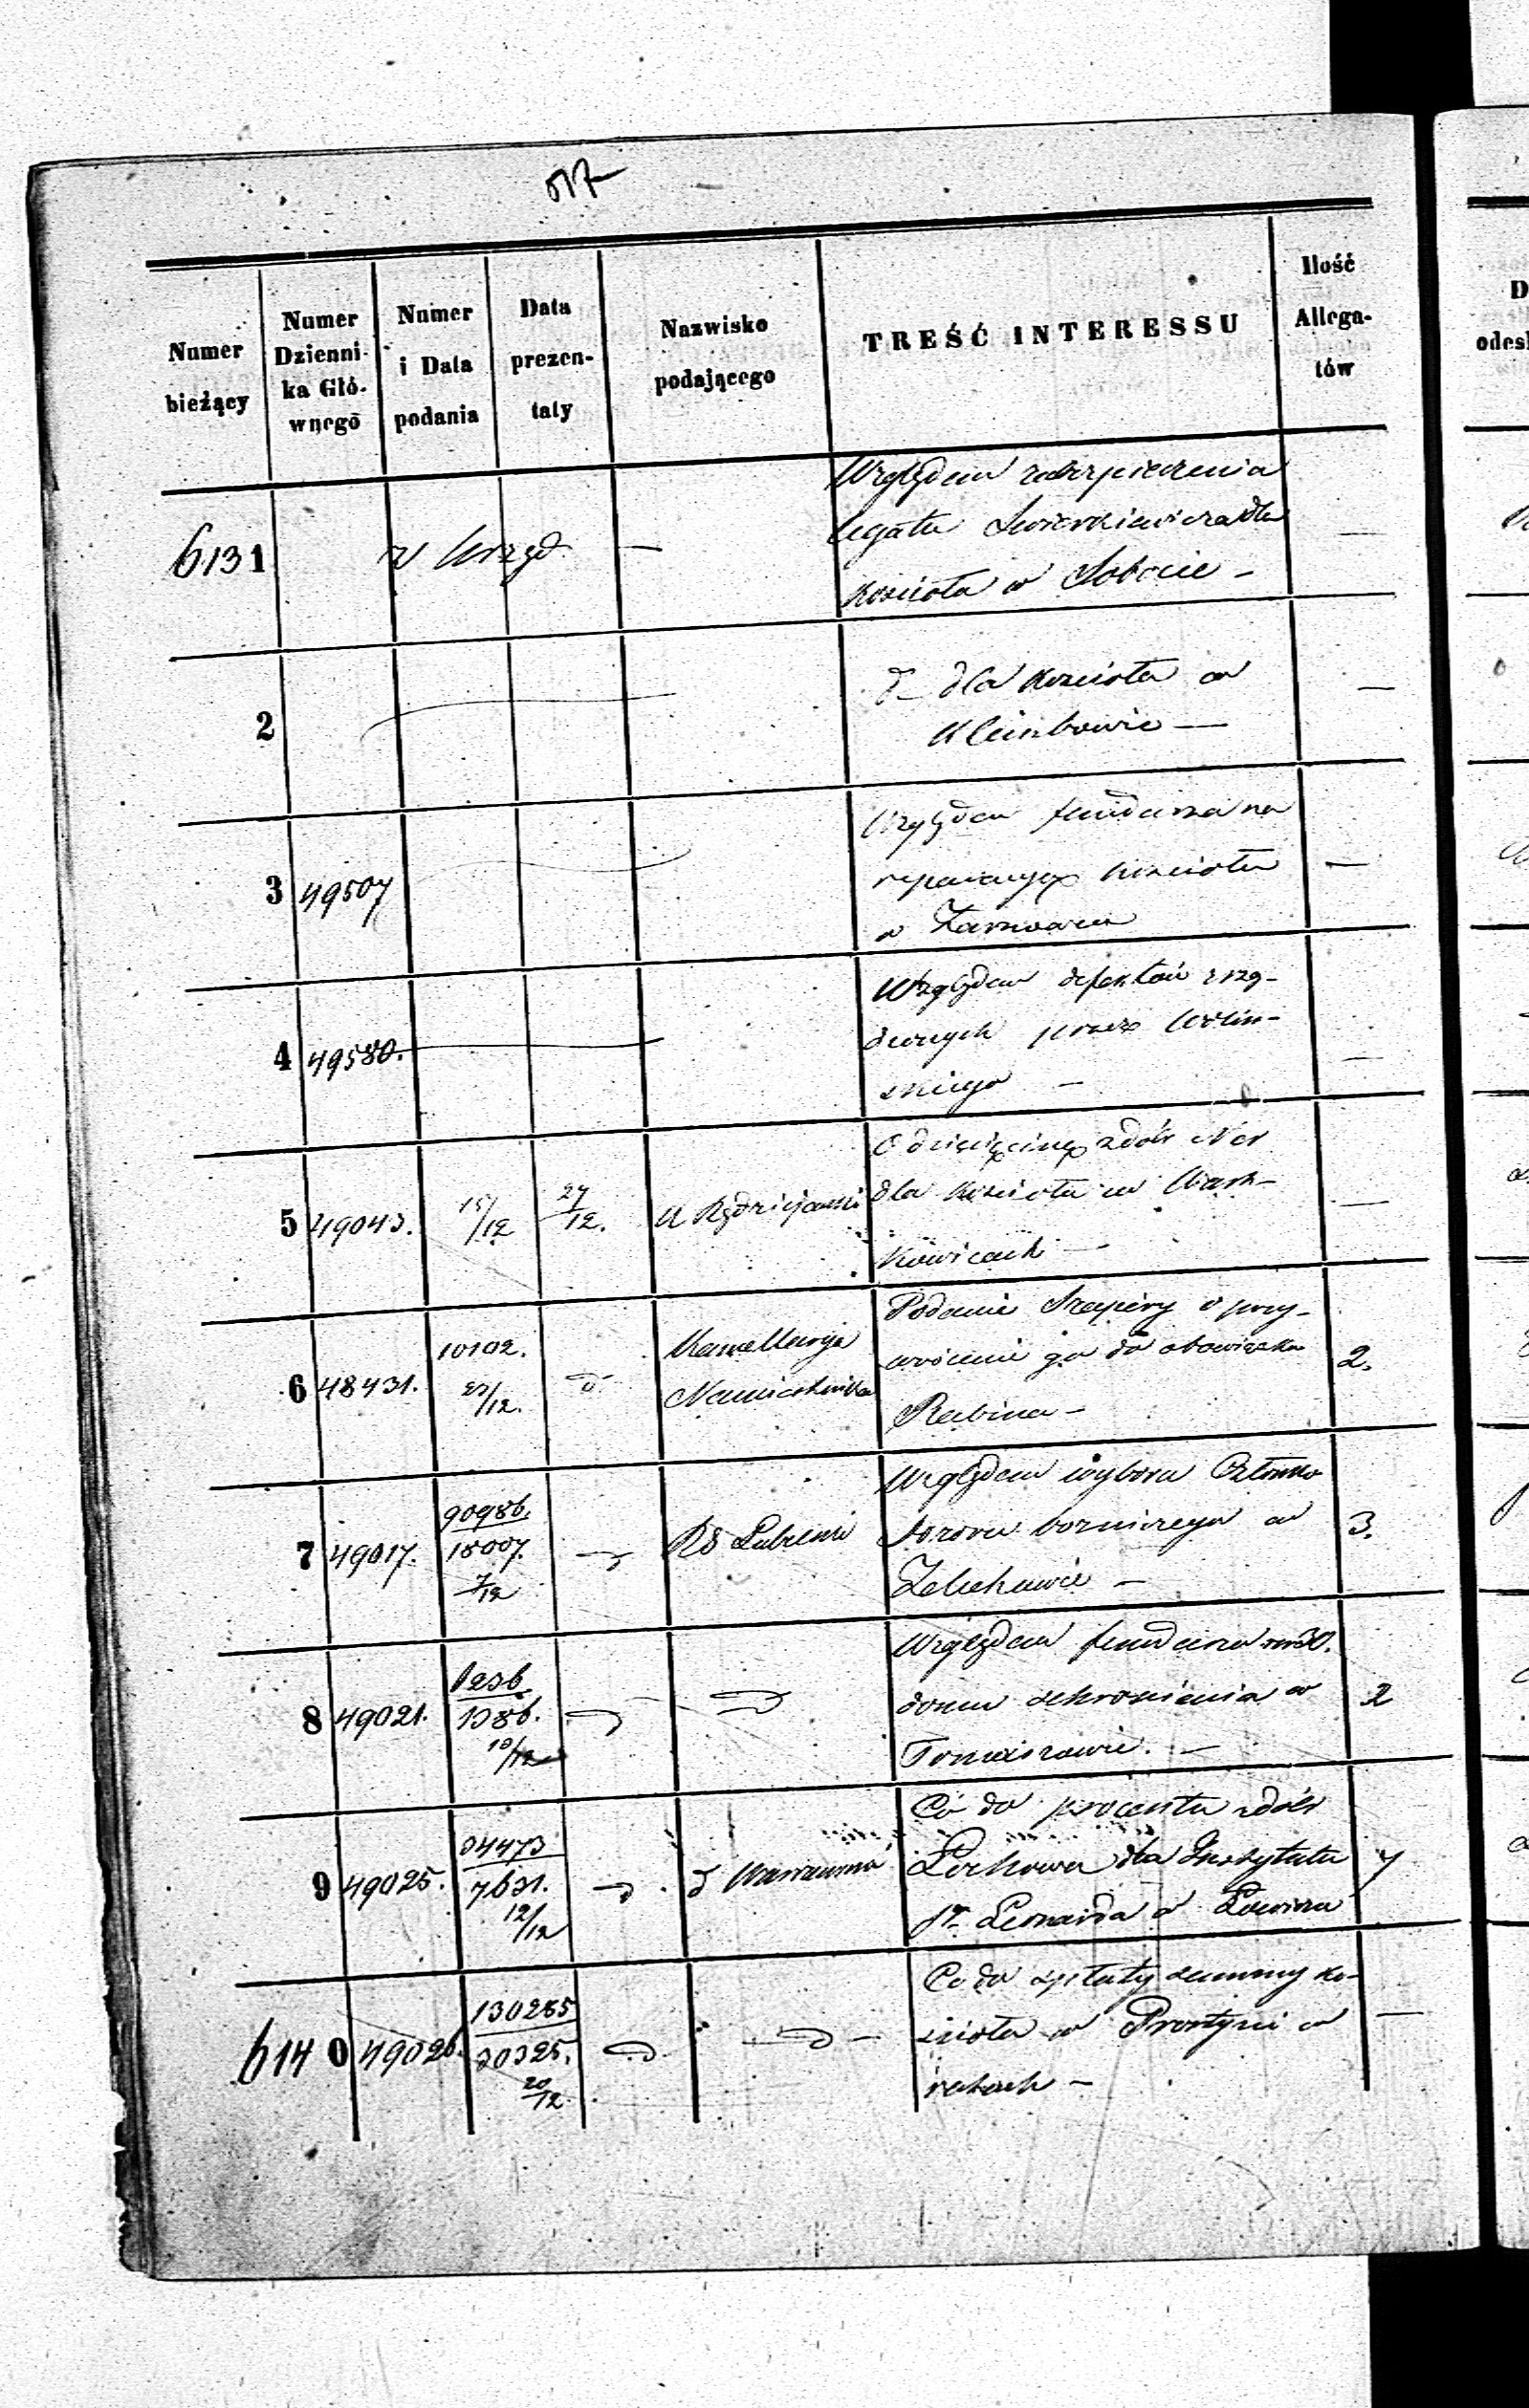 517
Numer bieżący
Numer Dzienni- ka Głó- wnego
Numer i Data podania
Data prezen- taty
Nazwisko podającego
TREŚĆ INTERESSU
Ilość Allega- tów
6131
z Urzęd. —
Względem zabezpieczenia
legatu dla
Kościoła w Sobocie —
—
2
d— dla Kościoła w
—
—
3
49507
Względem funduszu na
reparacyę Kościoła
w
—
4
49580.
Względem defektów zrzą-
dzonych przez
—
—
5
49043.
15/12
27/12.
O dziesięcinę z dóbr Ner
dla Kościoła w Wart-
kowicach —
—
6
48431.
10102.
23/12.
d.
Kancellaryja
Namiestnika
Podanie Szapiry o przy-
wrócenie go do obowiązku
Rabina —
2.
7
49017.
90986.
18007.
7/12
RG Lubelski
Względem wyboru Członka
Dozoru bożniczego w
Żelechowie —
3.
8
49021.
1236
1386.
10/12
Względem funduszu
domu schronienia w
Tomaszowie. —
2
9
49025.
34473
7631.
12/12
d Warszawski
Co do procentu z dóbr
dla Instytutu
St. Leonarda w Łowiczu
7
6140
49026.
130285
30325.
20/12.
Co do spłaty summy ko-
ścioła w Prostyni w
ratach —
—